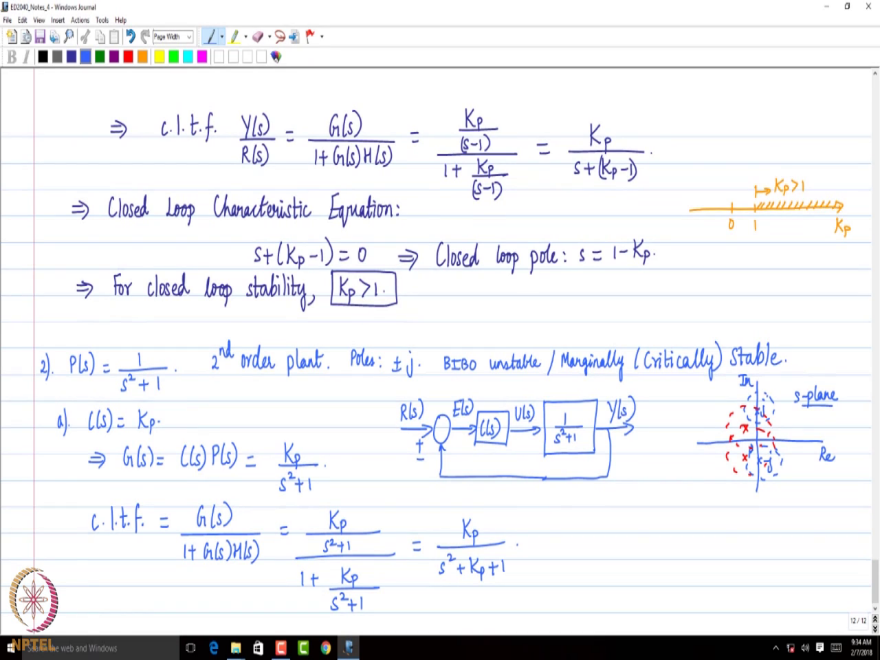 ED2040_Notes_4 - Windows Journal
File Edit View Insert Actions Tools Help
Page Width
B I
⇒ c.l.t.f. Y(s)/R(s) = G(s)/(1+G(s)H(s)) = (Kp/(s-1))/(1+Kp/(s-1)) = Kp/(s+(Kp-1)).
→ Kp>1
0 1 Kp
⇒ Closed Loop Characteristic Equation:
s+(Kp-1)=0 ⇒ Closed loop pole: s = 1-Kp.
⇒ For closed loop stability, Kp>1.
2). P(s) = 1/(s²+1). 2nd order plant. Poles: ±j. BIBO unstable / Marginally (Critically) Stable.
a). C(s) = Kp.
R(s) + - E(s) C(s) U(s) 1/(s²+1) Y(s)
Im s-plane
j -j Re
⇒ G(s) = C(s)P(s) = Kp/(s²+1).
c.l.t.f. = G(s)/(1+G(s)H(s)) = (Kp/(s²+1))/(1+Kp/(s²+1)) = Kp/(s²+Kp+1).
12 / 12
NPTEL
the web and Windows
9:34 AM
2/7/2018